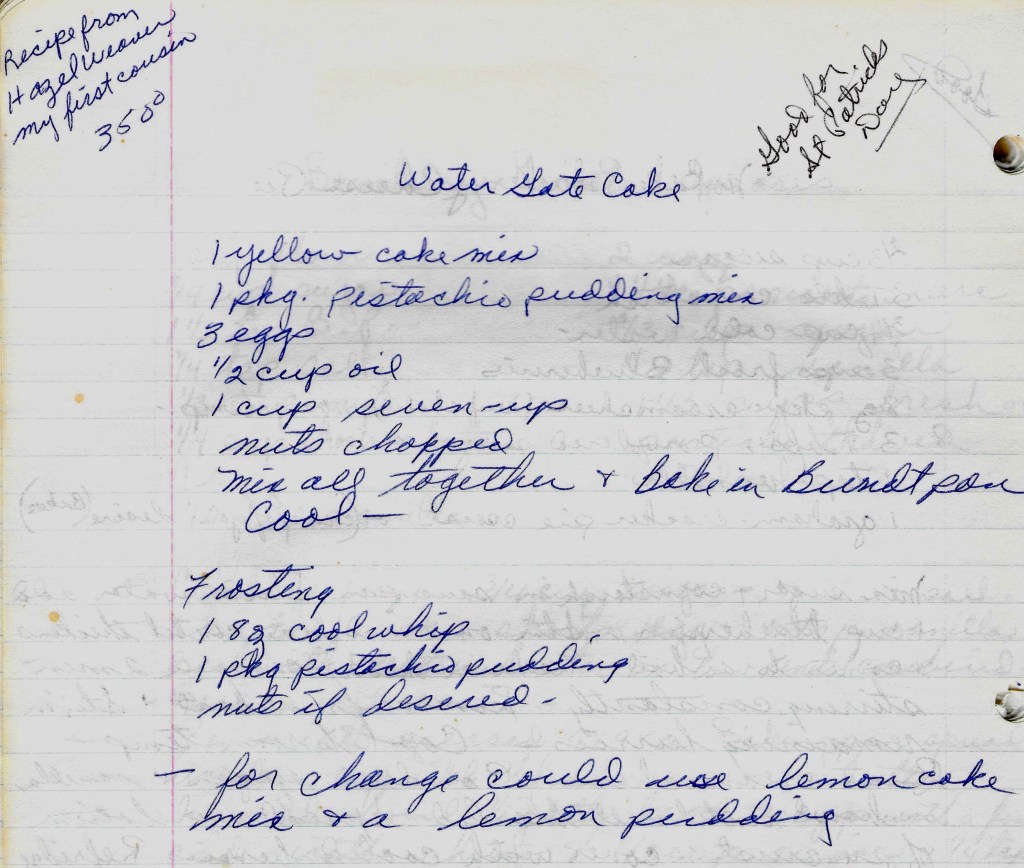 Recipe from
Hazel Weaver
my first cousin
350°
Good for
St Patricks
Day
Water Gate Cake
1 yellow cake mix
1 pkg. pistachio pudding mix
3 eggs
1/2 cup oil
1 cup seven-up
nuts chopped
Mix all together + Bake in Bundt pan
Cool —
Frosting
1 8z cool whip
1 pkg pistachio pudding
nuts if desired -
- for change could use lemon cake
mix + a lemon pudding